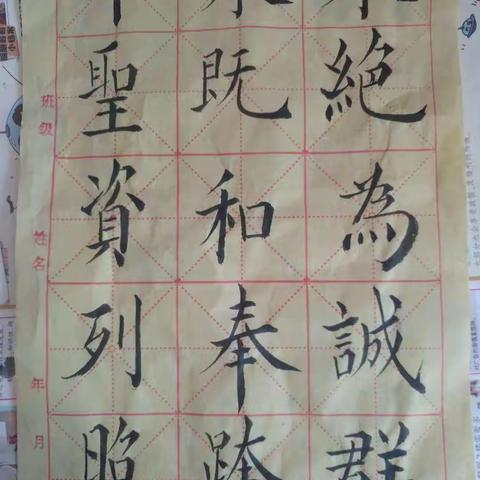 絶為誠群
既和奉跨
聖資列
班级
姓名
年
月